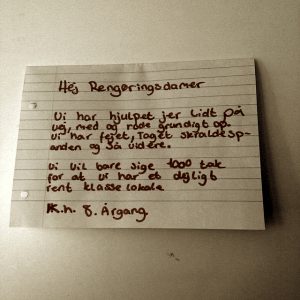 Hej Rengøringsdamer
Vi har hjulpet jer lidt på
vej, med og rode grundigt op.
Vi har fejet, Taget skraldesp-
anden og så vidére.
Vi vil bare sige 1000 tak
for at vi har et dejligt
rent klasse lokale
K.h. 8. Årgang